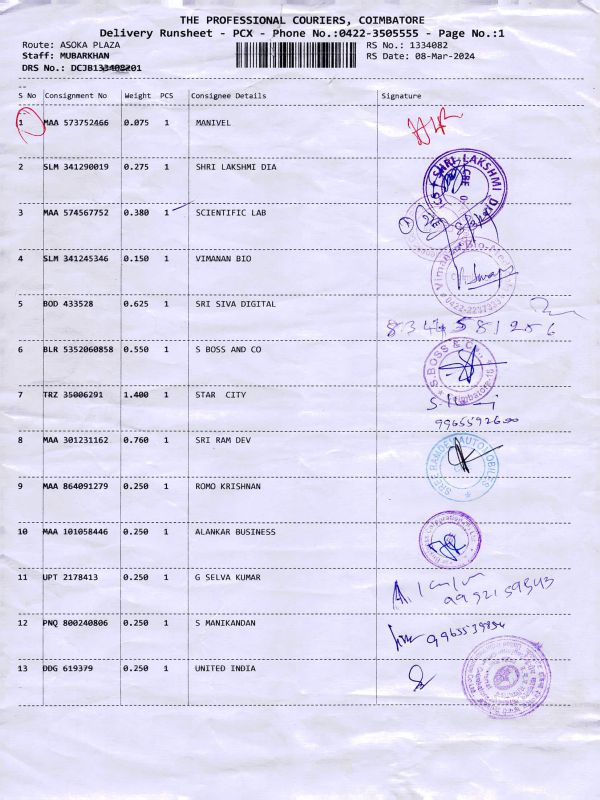 THE PROFESSIONAL COURIERS, COIMBATORE
Delivery Runsheet - PCX - Phone No.:0422-3505555 - Page No.:1
Route: ASOKA PLAZA RS No.: 1334082
Staff: MUBARKHAN RS Date: 08-Mar-2024
DRS No.: DCJB133408201
S No Consignment No Weight PCS Consignee Details Signature
1 MAA 573752466 0.075 1 MANIVEL
2 SLM 341290019 0.275 1 SHRI LAKSHMI DIA
SHRI LAKSHMI
3 MAA 574567752 0.380 1 SCIENTIFIC LAB
4 SLM 341245346 0.150 1 VIMANAN BIO
5 BOD 433528 0.625 1 SRI SIVA DIGITAL
6 BLR 5352060858 0.550 1 S BOSS AND CO
S.BOSS & CO.
7 TRZ 35006291 1.400 1 STAR CITY
8 MAA 301231162 0.760 1 SRI RAM DEV
SREE RAMDEV AUTOMOBILES
9 MAA 864091279 0.250 1 ROMO KRISHNAN
10 MAA 101058446 0.250 1 ALANKAR BUSINESS
11 UPT 2178413 0.250 1 G SELVA KUMAR
12 PNQ 800240806 0.250 1 S MANIKANDAN
13 DDG 619379 0.250 1 UNITED INDIA